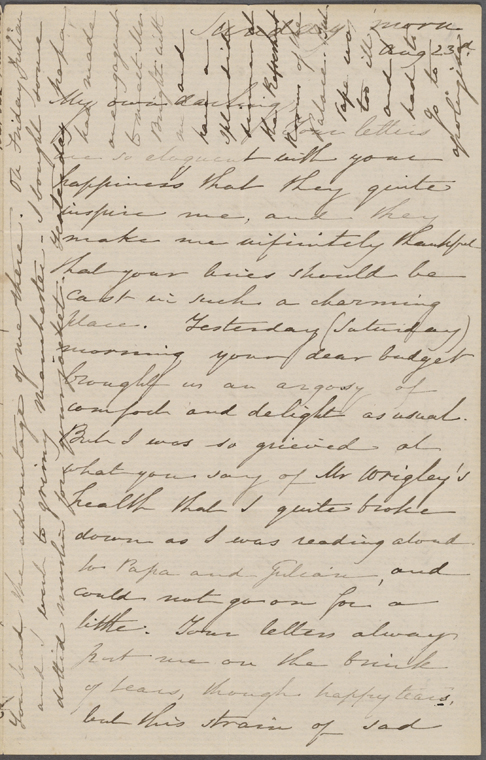 Sunday morn
Aug 23d
My own darlings,
Your letters
are so eloquent with your
happiness that they quite
inspire me, and they
make me infinitely thankful
that your lines should be
cast in such a charming
place. Yesterday (Saturday)
morning your dear budget
brought us an argosy of
comfort and delight as usual.
But I was so grieved at
what you say of Mr Wrigley's
health that I quite broke
down as I was reading aloud
to Papa and Julian, and
could not go on for a
little. Your letters always
put me on the brink
of tears, though happy tears,
but this strain of sad
You had the advantage of me there. On Friday Julian
and I went to grimy Manchester - I bought some
dotted muslin for your
Yesterday papa
had made
an engagement
to meet Mr
Bright
and
have a
splendid
dinner at
the Refreshment
Rooms of the
Palace. But
Papa was
too ill
and had to
go to
apologize